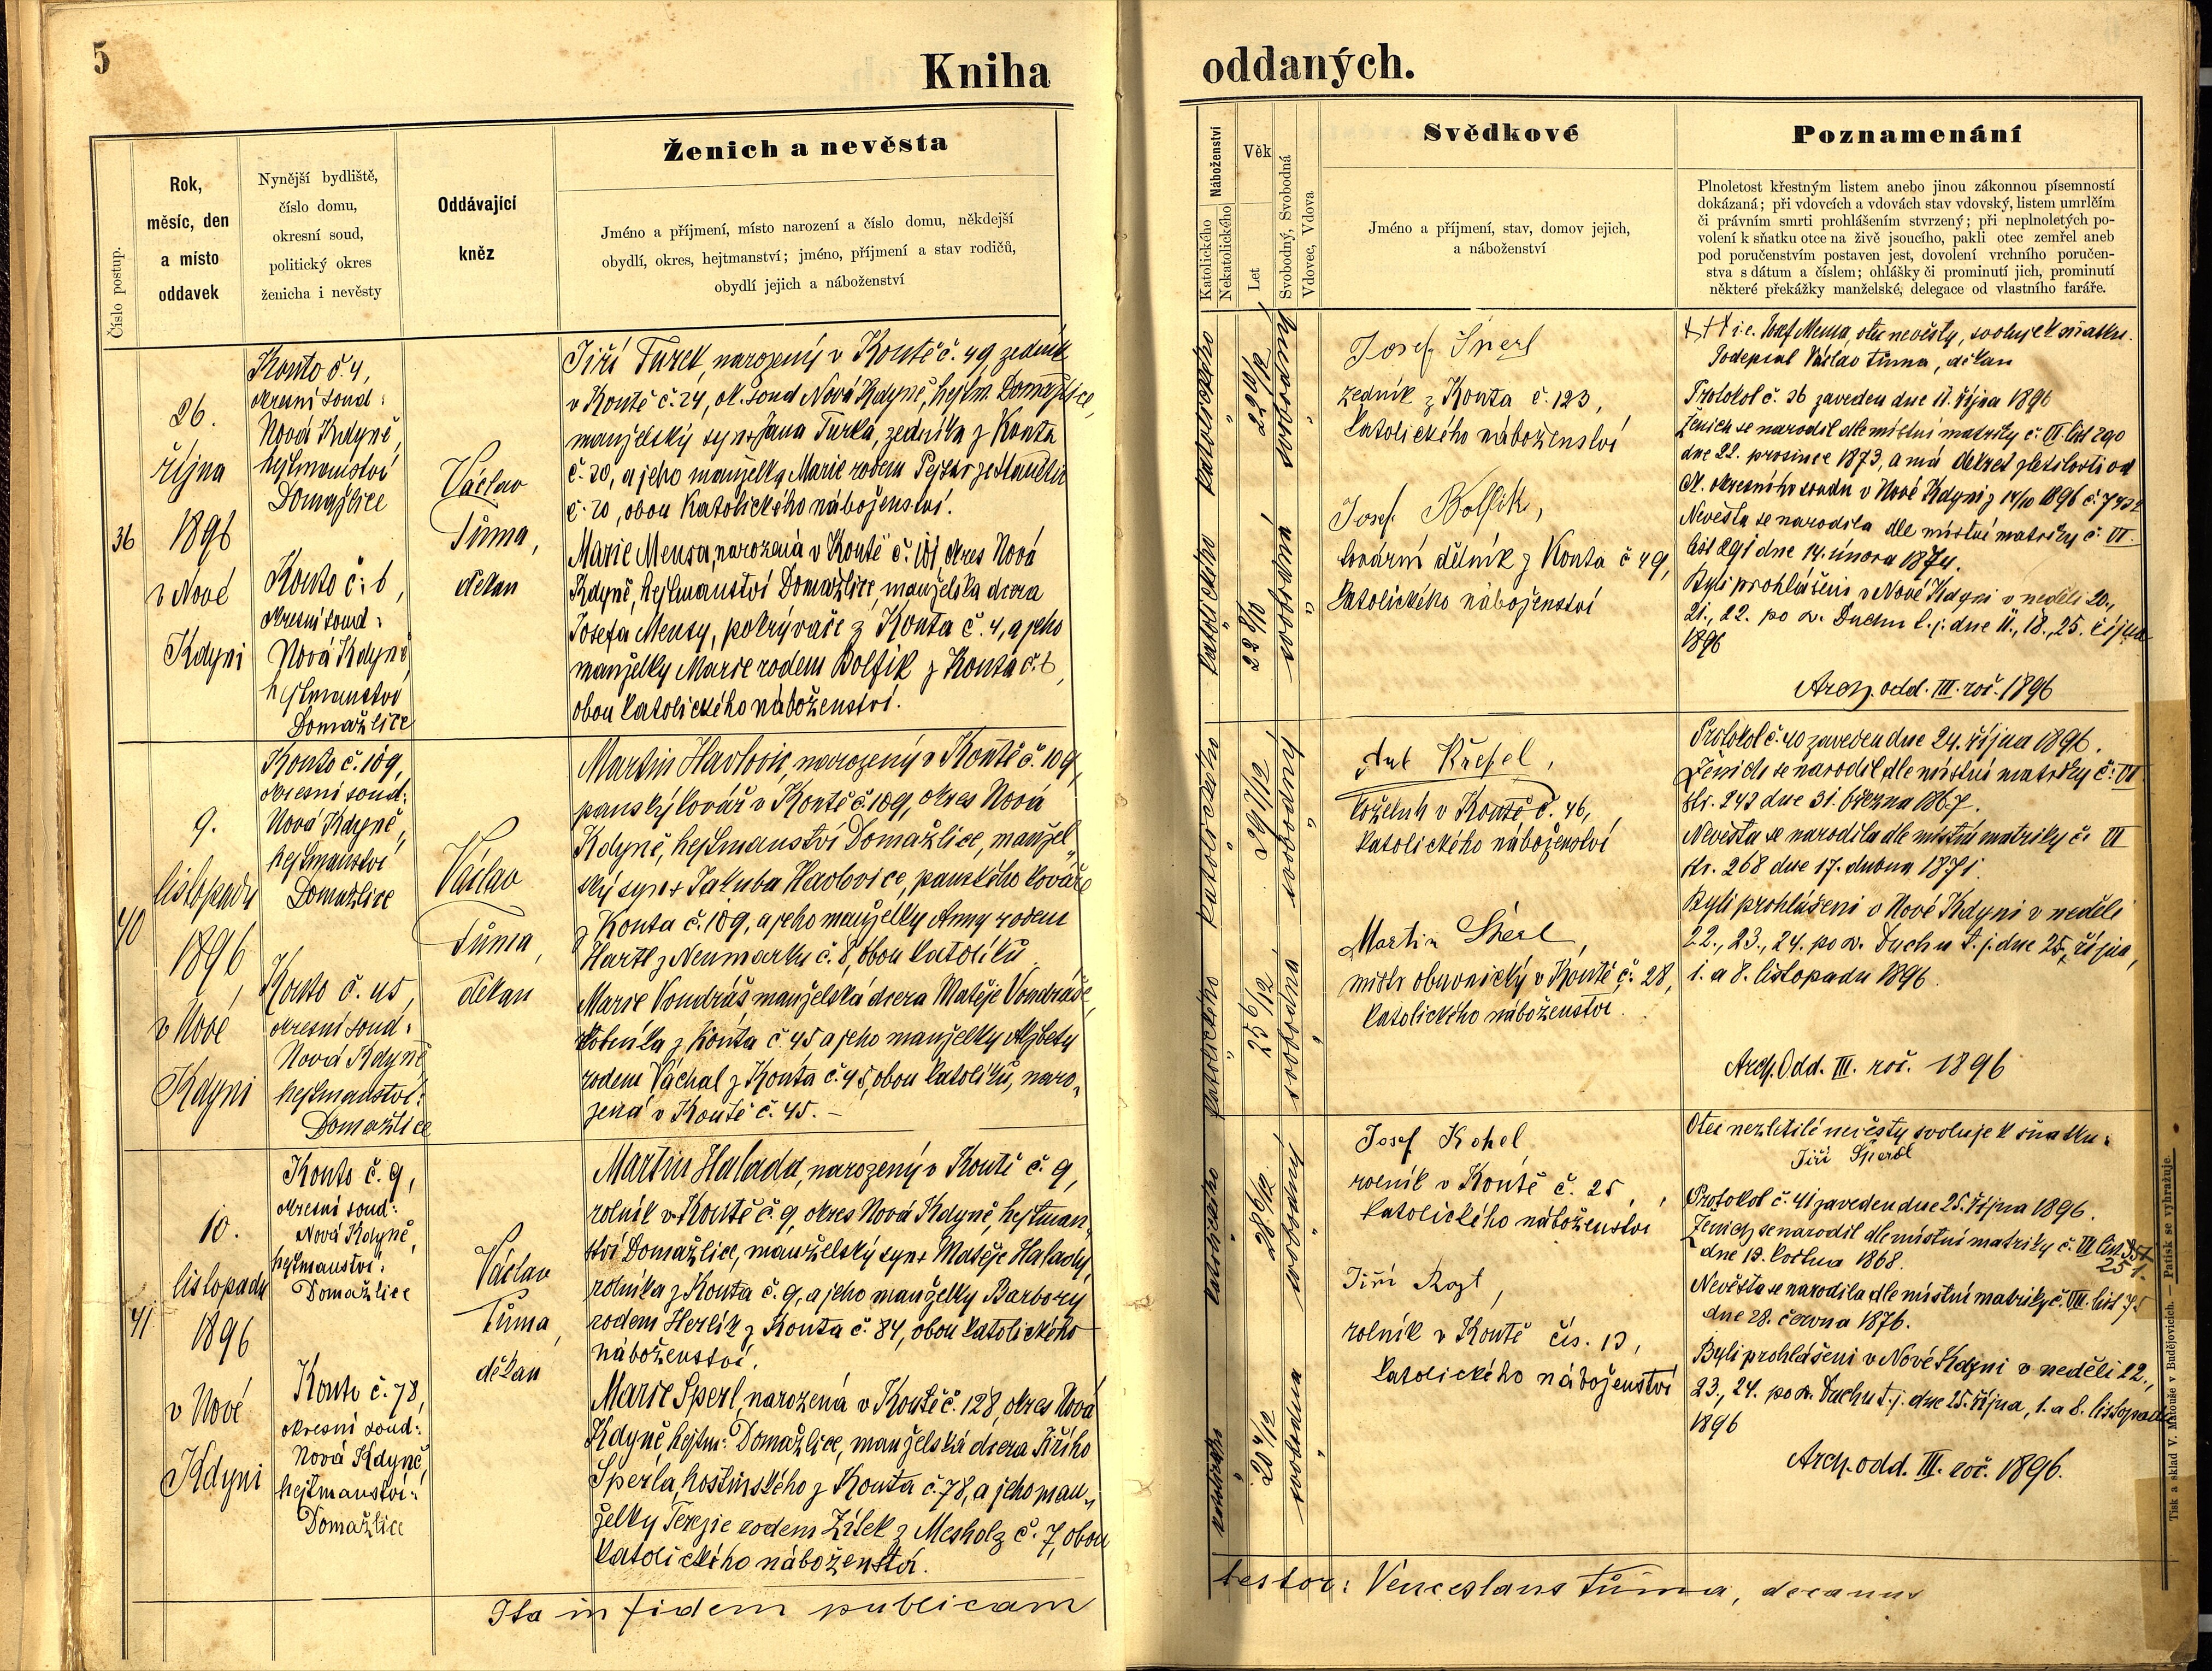 5
Kniha
Číslo postup.
Rok,
měsíc, den
a místo
oddavek
Nynější bydliště,
číslo domu,
okresní soud,
politický okres
ženicha i nevěsty
Oddávající
kněz
Ženich a nevěsta
Jméno a příjmení, místo narození a číslo domu, někdejší
obydlí, okres, hejtmanství; jméno, příjmení a stav rodičů,
obydlí jejich a náboženství
36
26.
října
1896
v Nové
Kdyni
Kouto č. 4,
okresní soud:
Nová Kdyně,
hejtmanství
Domažlice
Kouto č: 6,
okresní soud:
Nová Kdyně
hejtmanství
Domažlice
Václav
Tůma,
děkan
Jiří Turek, narozený v Koutě č. 49, zedník
v Koutě č. 24, ok. soud Nová Kdyně, hejtm. Domažlice,
manželský syn + Jana Turka, zedníka z Kouta
č. 20, a jeho manželky Marie rodem
č. 20, obou katolického náboženství.
Marie Mensa, narozená v Koutě č. 101, okres Nová
Kdyně, hejtmanství Domažlice, manželská dcera
Josefa Mensy, pokrývače z Kouta č. 4, a jeho
manželky Marie rodem Bolfik z Kouta č. 6,
obou katolického náboženství.
40
9.
listopadu
1896,
v Nové
Kdyni
Kouto č. 109,
okresní soud:
Nová Kdyně,
hejtmanství
Domažlice
Kouto č. 45,
okresní soud:
Nová Kdyně
hejtmanství:
Domažlice
Václav
Tůma,
děkan
Martin Havlovic, narozený v Koutě č. 109,
panský kovář v Koutě č. 109, okres Nová
Kdyně, hejtmanství Domažlice, manžel„
ský syn + Jakuba Havlovice, panského kováře
z Kouta č. 109, a jeho manželky Anny rodem
Hartl z Neumarku č. 8, obou katolíků.
Marie Vondráš, manželská dcera Matěje Vondráše,
z Kouta č. 45 a jeho manželky Alžbety
rodem Váchal z Kouta č. 45, obou katolíků, naro„
zená v Koutě č. 45. —
41
10.
listopadu
1896
v Nové
Kdyni
Kouto č. 9,
okresní soud:
Nová Kdyně,
hejtmanství:
Domažlice
Kouto č. 78,
okresní soud:
Nová Kdyně,
hejtmanství:
Domažlice
Václav
Tůma,
děkan
Martin Halada, narozený v Koutě č. 9,
rolník v Koutě č. 9, okres Nová Kdyně, hejtman„
ství Domažlice, manželský syn + Matěje Halady,
rolníka z Kouta č. 9, a jeho manželky Barbory
rodem Herlík z Kouta č. 84, obou katolického
náboženství.
Marie Sperl, narozená v Koutě č. 128, okres Nová
Kdyně, hejtm: Domažlice, manželská dcera Jiřího
Sperla, hostinského z Kouta č. 78, a jeho man„
želky Terezie rodem Zítek z Mesholz č. 7, obou
katolického náboženství.
Ita in fidem publicam
oddaných.
Náboženství
Katolického
Nekatolického
Věk
Let
Svobodný, Svobodná
Vdovec, Vdova
Svědkové
Jméno a příjmení, stav, domov jejich,
a náboženství
Poznamenání
Plnoletost křestným listem anebo jinou zákonnou písemností
dokázaná; při vdovcích a vdovách stav vdovský, listem umrlčím
či právním smrti prohlášením stvrzený; při neplnoletých po-
volení k sňatku otce na živě jsoucího, pakli otec zemřel aneb
pod poručenstvím postaven jest, dovolení vrchního poručen-
stva s dátum a číslem; ohlášky či prominutí jich, prominutí
některé překážky manželské, delegace od vlastního faráře.
katolického
22 10/12
svobodný
katolického
22 8/12
svobodná
Josef Sperl
zedník z Kouta č. 123,
katolického náboženství
Josef Bolfik,
tovární dělník z Kouta č 49,
katolického náboženství
+++ i.e. Josef Mensa, otec nevěsty, svoluje k sňatku.
Podepsal Václav Tůma, děkan
Protokol č. 36 zaveden dne 11. října 1896
Ženich se narodil dle místní matriky č. VI list 290
dne 22. prosince 1873, a má dekret zletilosti od
ct. okresního soudu v Nové Kdyni z 14/10 1896 č.
Nevěsta se narodila dle místní matriky č. VI.
list 291 dne 14. února 1874.
Byli prohlášeni v Nové Kdyni v neděli 20.,
21., 22. po sv. Duchu t. j. dne 11., 18., 25. října
1896
Arch. odd. III. roč. 1896
katolického
29 7/12
svobodný
katolického
25 6/12
svobodná
Ant Křepel,
koželuh v Koutě č. 46,
katolického náboženství
Martin Sperl,
mistr obuvnický v Koutě č. 28,
katolického náboženství.
Protokol č. 40 zaveden dne 24. října 1896.
Ženich se narodil dle místní matriky č: VI
str. 242 dne 31. března 1867.
Nevěsta se narodila dle místní matriky č. VI
str. 268 dne 17. dubna 1871.
Byli prohlášeni v Nové Kdyni v neděli
22., 23., 24. po sv. Duchu t. j. dne 25. října,
1. a 8. listopadu 1896.
Arch. Odd. III. roč. 1896
katolického
28 6/12
svobodný
katolického
20 4/12
svobodná
Josef Kohel
rolník v Koutě č. 25,
katolického náboženství
Jiří Rozl,
rolník v Koutě čís. 13,
katolického náboženství
Otec nezletilé nevěsty svoluje k sňatku:
Jiří Sperl
Protokol č. 41 zaveden dne 25. října 1896.
Ženich se narodil dle místní matriky č. VI list
251.
dne 13. května 1868.
Nevěsta se narodila dle místní matriky č. VII. list 75
dne 28. června 1876.
Byli prohlášeni v Nové Kdyni v neděli 22.,
23., 24. po sv. Duchu t. j. dne 25. října, 1. a 8. listopadu
1896
Arch. odd. III. roč. 1896.
testor: Venceslaus Tůma, decanus
Tisk a sklad V. Matouše v Budějovicích. — Patisk se vyhražuje.